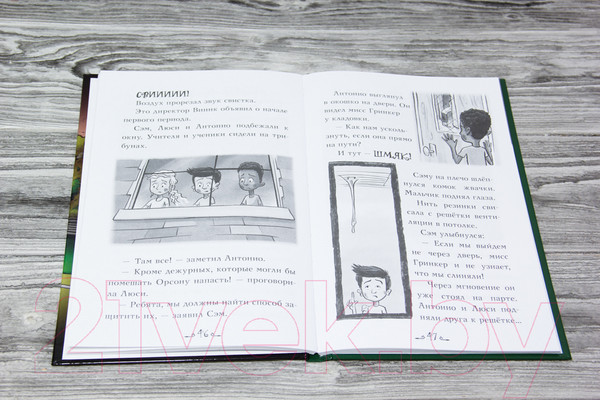 СРИИИИИ!
Воздух прорезал звук свистка.
Это директор Виник объявил о начале
первого периода.
Сэм, Люси и Антонио подбежали к
окну. Учителя и ученики сидели на три-
бунах.
— Там все! — заметил Антонио.
— Кроме дежурных, которые могли бы
помешать Орсону напасть! — проговори-
ла Люси.
— Ребята, мы должны найти способ за-
щитить их, — заявил Сэм.
46
Антонио выглянул
в окошко на двери. Он
видел мисс Гринкер
у кладовки.
— Как нам усколь-
знуть, если она прямо
на пути?
И тут — ШМЯК!
Сэму на плечо шлёп-
нулся комок жвачки.
Мальчик поднял глаза.
Нить резинки сви-
сала с решётки венти-
ляции в потолке.
Сэм улыбнулся:
— Если мы выйдем
не через дверь, мисс
Гринкер и не узнает,
что мы слиняли!
Через мгновение он
уже стоял на парте.
Антонио и Люси под-
няли друга к решётке...
47
21vek.by